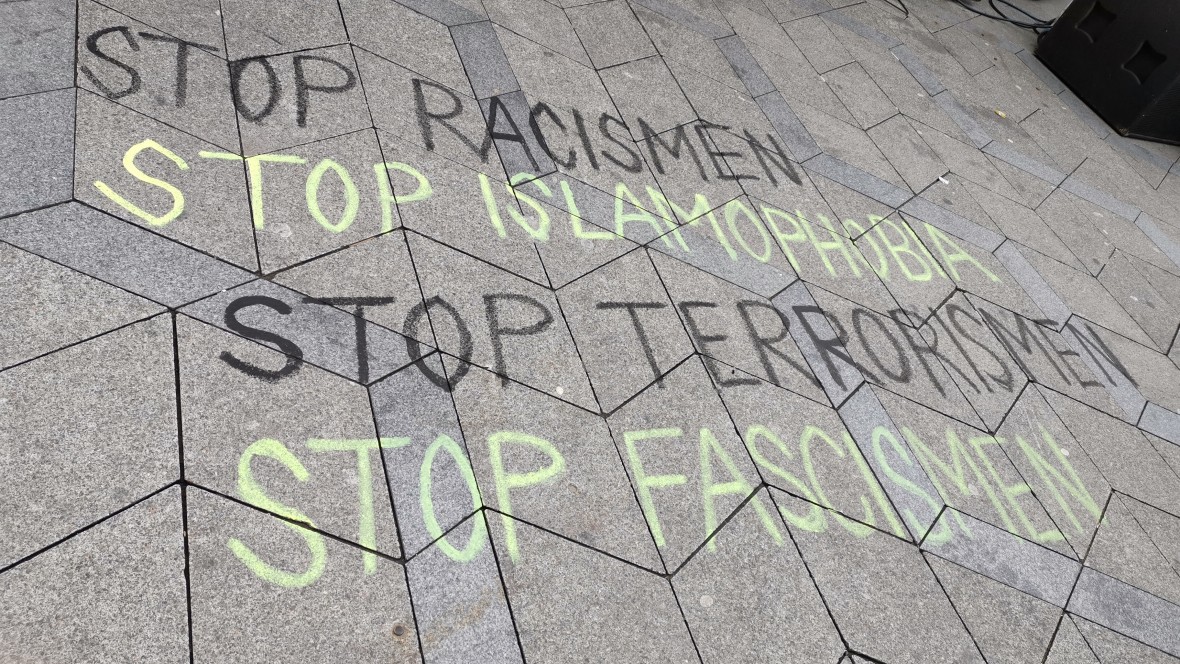 STOP RACISMEN
STOP ISLAMOPHOBIA
STOP TERRORISMEN
STOP FASCISMEN